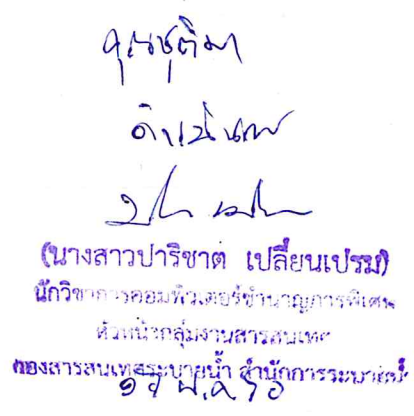 คุณชุติมา
ดำเนินการ
(นางสาวปาริชาต เปลี่ยนเปรม)
นักวิชาการคอมพิวเตอร์ชำนาญการพิเศษ
หัวหน้ากลุ่มงานสารสนเทศ
กองสารสนเทศระบายน้ำ สำนักการระบายน้ำ